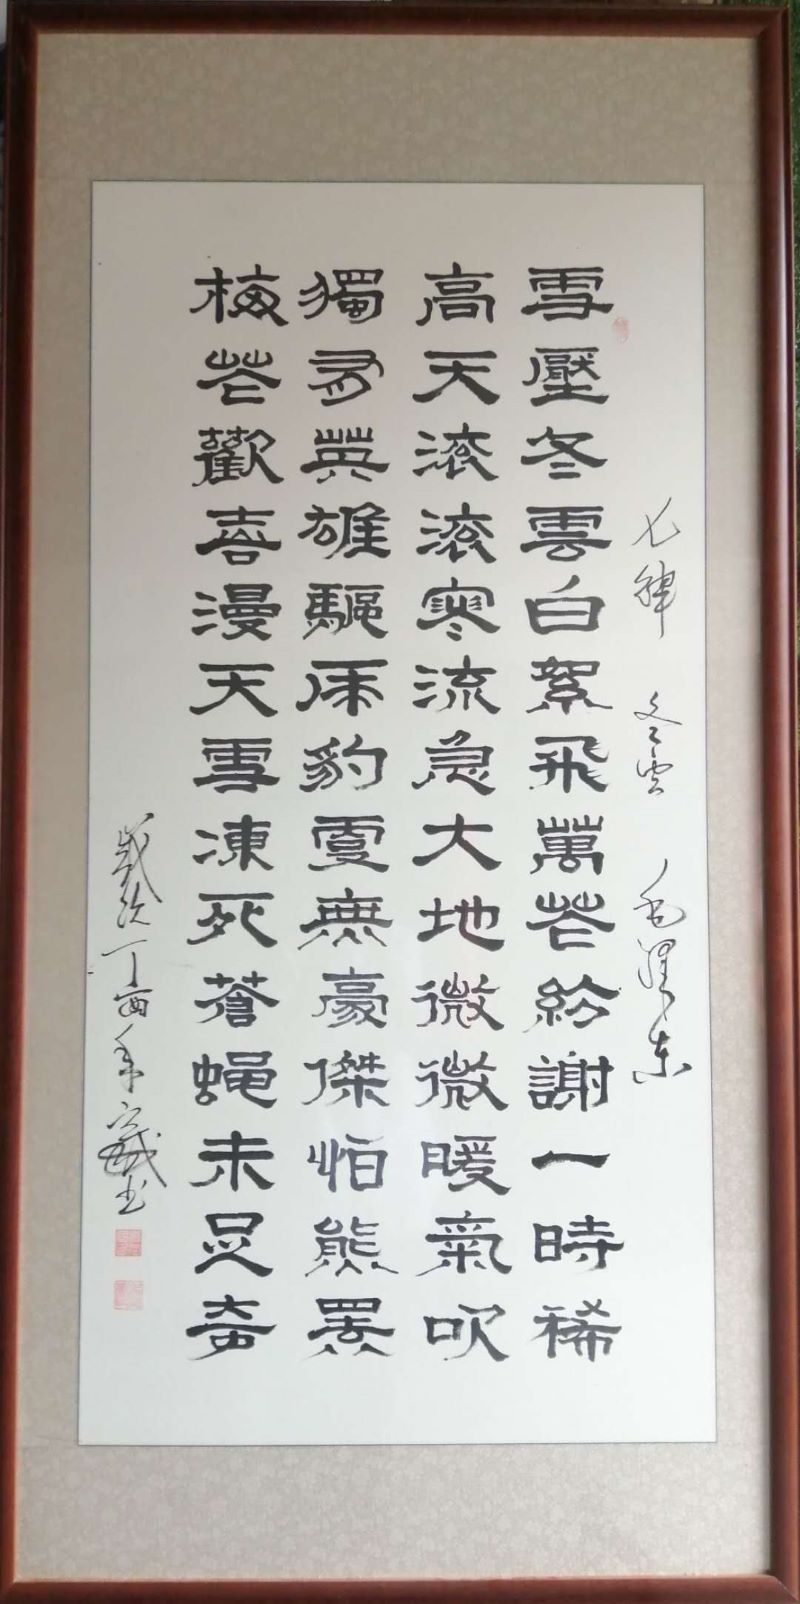 七律 冬雲 毛澤東
雪壓冬雲白絮飛萬花紛謝一時稀
高天滾滾寒流急大地微微暖氣吹
獨有英雄驅虎豹更無豪傑怕熊羆
梅花歡喜漫天雪凍死蒼蝇未足奇
歲次丁酉年 書